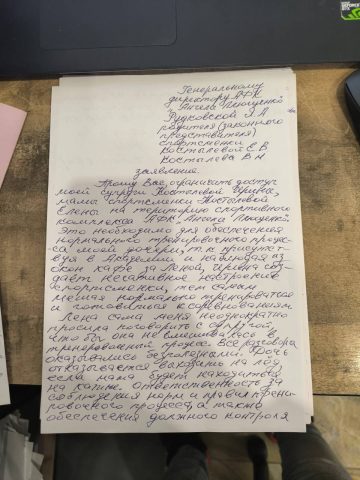 Генеральному
директору АФК
"Ангелы Плющенко"
Рудковской Я.А
родителя (законного
представителя)
спортсменки
Костылевой Е.В
Костылева В Н
заявление.
Прошу Вас ограничить доступ
моей супруги Костылевой Ирины,
мамы спортсменки Костылевой
Елены на территорию спортивного
комплекса АФК "Ангелы Плющенко"
Это необходимо для обеспечения
нормального тренировочного процес-
са моей дочери, т.к присутст-
вуя в Академии и наблюдая из
окон кафе за Леной, Ирина соз-
даёт негативное настроение
спортсменки, тем самым
мешая нормально тренироваться
и готовиться к соревнованиям
Лена сама меня неоднократно
просила поговорить с супругой,
что бы она не вмешивалась в
тренировочный процесс. Все разговоры
оказывались бесполезными. Дочь
отказывается выходить на лёд
если мама будет находиться
на катке. Ответственность за
соблюдения норм и правил трени-
ровочного процесса, а также
обеспечения должного контроля